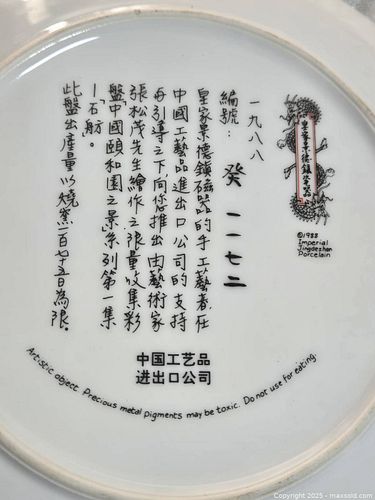 一九八八
編號： 癸 一一七二
皇家景德鎮磁器的手工藝者在
中國工藝品進出口公司的支持
和引導之下向您推出由藝術家
張松茂先生繪作之限量收集彩
盤「中國頤和園之景系列第一集
—石舫。
此盤出產量以燒窯一百七十五日為限。
皇家景德鎮瓷器
©1988
Imperial
Jingdezhen
Porcelain
中国工艺品
进出口公司
Artistic object. Precious metal pigments may be toxic. Do not use for eating.
© Copyright 2025 - maxsold.com